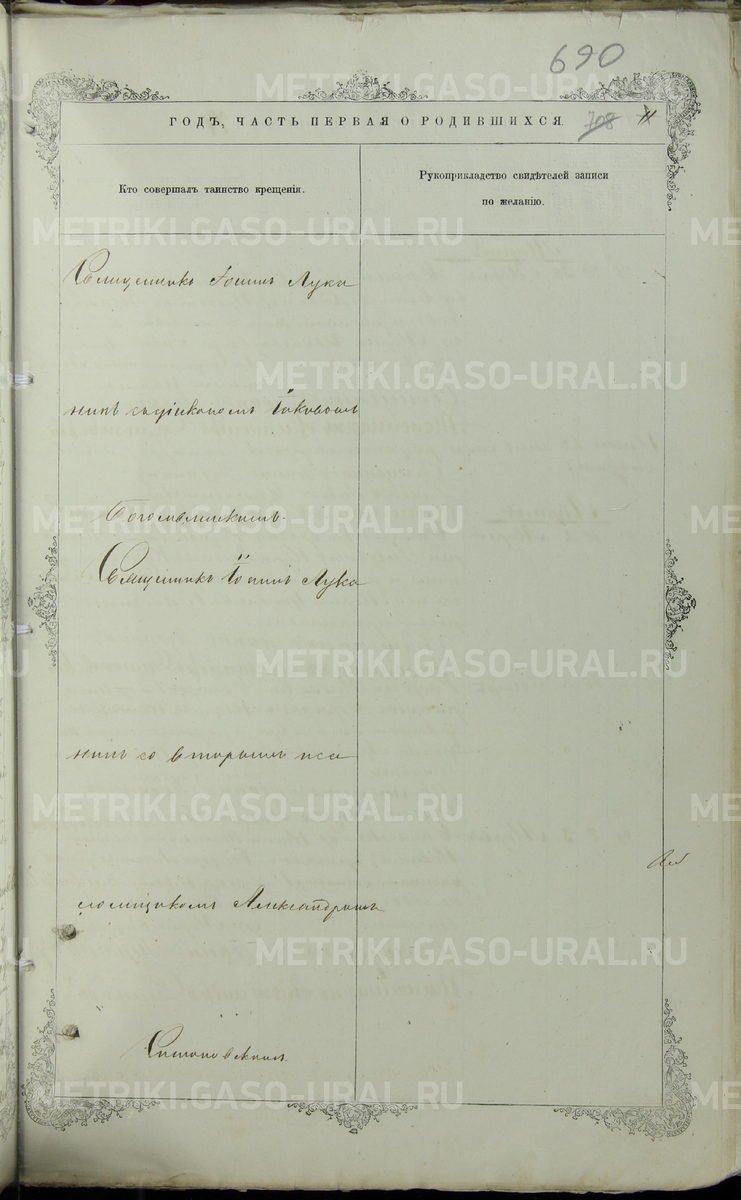 690
ГОДЪ, ЧАСТЬ ПЕРВАЯ О РОДИВШИХСЯ.
708
11
Кто совершалъ таинство крещенія.
Рукоприкладство свидѣтелей записи
по желанію.
Священникъ Іоаннъ Лука
нинъ съ діакономъ Іаковомъ
Священникъ Іоаннъ Лука
нинъ со вторымъ пса
ломщикомъ Александромъ
METRIKI.GASO-URAL.RU